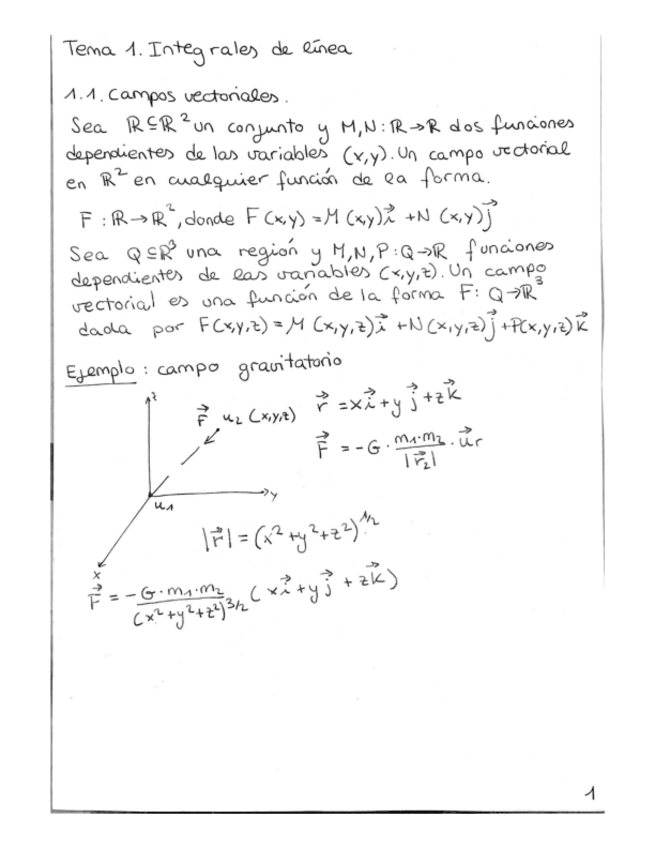 Tema 1. Integrales de línea
1.1. Campos vectoriales.
Sea ℝ⊆ℝ² un conjunto y M,N: ℝ→ℝ dos funciones
dependientes de las variables (x,y). Un campo vectorial
en ℝ² en cualquier función de la forma.
F: ℝ→ℝ², donde F(x,y) = M(x,y)i⃗ + N(x,y)j⃗
Sea Q⊆ℝ³ una región y M,N,P: Q→ℝ funciones
dependientes de las variables (x,y,z). Un campo
vectorial es una función de la forma F: Q→ℝ³
dada por F(x,y,z) = M(x,y,z)i⃗ + N(x,y,z)j⃗ + P(x,y,z)k⃗
Ejemplo: campo gravitatorio
z
F⃗ u₂ (x,y,z)
r⃗ = xi⃗ + yj⃗ + zk⃗
F⃗ = -G · m₁·m₂/|r⃗₂| · u⃗r
y
u₁
|r⃗| = (x²+y²+z²)^1/2
x
F⃗ = -G·m₁·m₂/(x²+y²+z²)^3/2 (xi⃗ + yj⃗ + zk⃗)
1